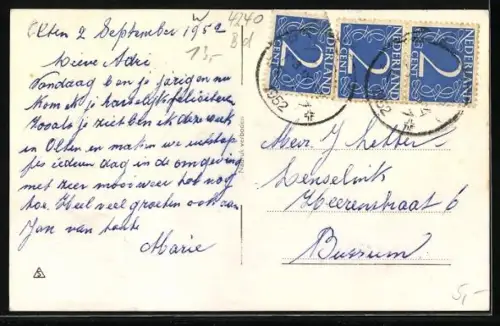 Otten 2 September 1952
Lieve Adri
Vandaag ben je jarig en nu
kom ik je hartelijk feliciteren
Zooals je ziet ben ik deze week
in Otten en maken we uitstap
jes iederen dag in de omgeving
met zeer mooi weer tot nog
toe. Heel veel groeten ook aan
Jan van tante
Marie
W 4240
Bd
13,-
NEDERLAND
2
CENT
NEDERLAND
2
CENT
NEDERLAND
2
CENT
1952
1952
Nadruk verboden
Mevr. J Letter
Lenselink
Heerenstraat 6
Bussum
5,-